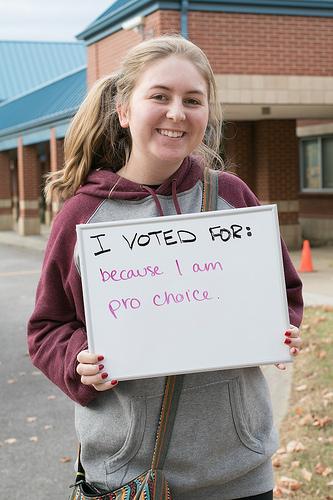 I VOTED FOR:
because I am
pro choice.